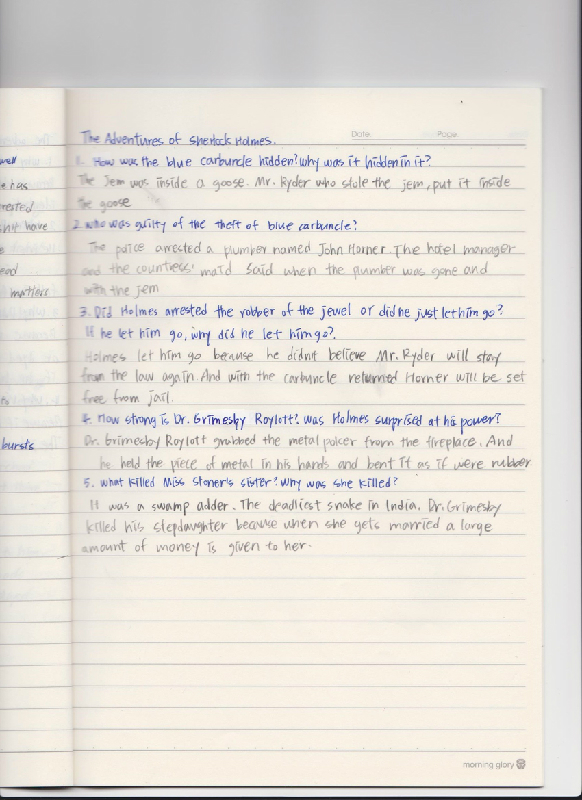 well
e has
reated
shy have
e
ead
matters
bursts
Date
Page
The Adventures of Sherlock Holmes.
1. How was the blue carbuncle hidden? why was it hidden in it?
The Jem was inside a goose. Mr. Ryder who stole the jem, put it inside
the goose
2. who was guilty of the theft of blue carbuncle?
The police arrested a plumber named John Horner. The hotel manager
and the countless' maid said when the plumber was gone and
with the jem
3. Did Holmes arrested the robber of the jewel or did he just let him go?
If he let him go, why did he let him go?
Holmes let him go becanse he didn't believe Mr. Ryder will stay
from the law again. And with the carbuncle returned Horner will be set
free from jail.
4. How strong is Dr. Grimesby Roylott? was Holmes surprised at his power?
Dr. Grimesby Roylott grabbed the metal poker from the fireplace. And
he held the piece of metal in his hands and bent it as if were rubber
5. what killed Miss Stoner's sister? Why was she killed?
It was a swamp adder. The deadliest snake in India. Dr. Grimesby
killed his stepdaughter because when she gets married a large
amount of money is given to her.
morning glory